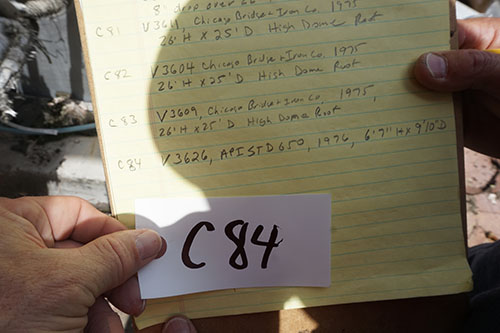 8' drop over 66
C81 V3611, Chicago Bridge + Iron Co. 1975
26' H x 25' D High Dome Roof
C82 V3604 Chicago Bridge + Iron Co, 1975
26' H x 25' D High Dome Roof
C83 V3609, Chicago Bridge + Iron Co, 1975,
26' H x 25' D High Dome Roof
C84 V3626, API STD 650, 1976, 6'9" H x 9'10" D
C84